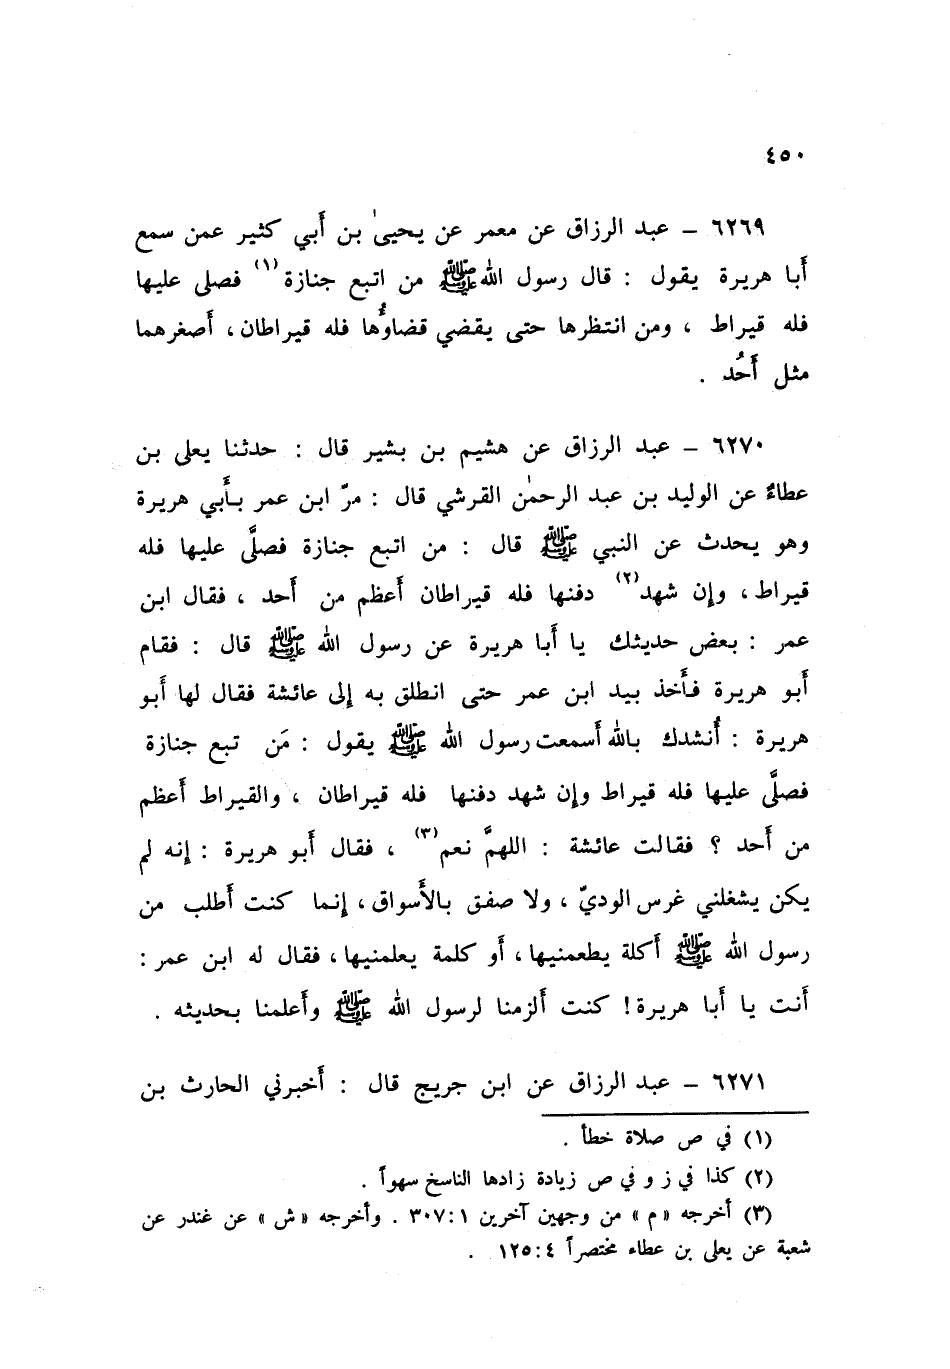 ٤٥٠
٦٢٦٩ – عبد الرزاق عن معمر عن يحيىٰ بن أَبي كثير عمن سمع
أَبا هريرة يقول : قال رسول الله ﷺ من اتبع جنازة (١) فصلى عليها
فله قيراط ، ومن انتظرها حتى يقضي قضاؤُها فله قيراطان، أَصغرهما
مثل أُحُد .
٦٢٧٠ – عبد الرزاق عن هشيم بن بشير قال : حدثنا يعلى بن
عطاءٍ عن الوليد بن عبد الرحمٰن القرشي قال : مرّ ابن عمر بأَبي هريرة
وهو يحدث عن النبي ﷺ قال : من اتبع جنازة فصلَّى عليها فله
قيراط، وإن شهد (٢) دفنها فله قيراطان أَعظم من أَحد ، فقال ابن
عمر : بعض حديثك يا أَبا هريرة عن رسول الله ﷺ قال : فقام
أَبو هريرة فأَخذ بيد ابن عمر حتى انطلق به إِلى عائشة فقال لها أَبو
هريرة : أُنشدك بالله أَسمعت رسول الله ﷺ يقول : مَن تبع جنازة
فصلَّى عليها فله قيراط وإن شهد دفنها فله قيراطان ، والقيراط أَعظم
من أَحد ؟ فقالت عائشة : اللهمَّ نعم (٣) ، فقال أَبو هريرة : إنه لم
يكن يشغلني غرس الوديّ ، ولا صفق بالأَسواق، إِنما كنت أَطلب من
رسول الله ﷺ أَكلة يطعمنيها، أَو كلمة يعلمنيها، فقال له ابن عمر :
أَنت يا أَبا هريرة! كنت أَلزمنا لرسول الله ﷺ وأَعلمنا بحديثه .
٦٢٧١ – عبد الرزاق عن ابن جريج قال : أَخبرني الحارث بن
(١) في ص صلاة خطأ .
(٢) كذا في ز و في ص زيادة زادها الناسخ سهواً .
(٣) أخرجه «م» من وجهين آخرين ٣٠٧:١ . وأخرجه «ش» عن غندر عن
شعبة عن يعلى بن عطاء مختصراً ١٢٥:٤ .